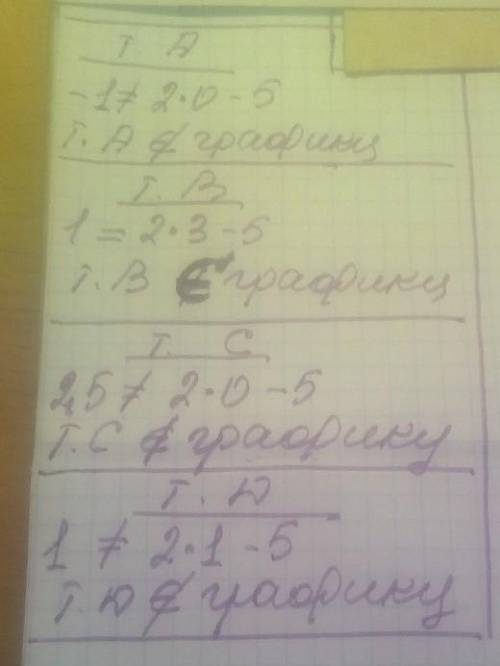 т. А
-1 ≠ 2·0-5
Т. А ∉ графику
т. В
1 = 2·3-5
т. В ∈ графику
т. С
2,5 ≠ 2·0-5
Т. С ∉ графику
т. D
1 ≠ 2·1-5
Т. D ∉ графику